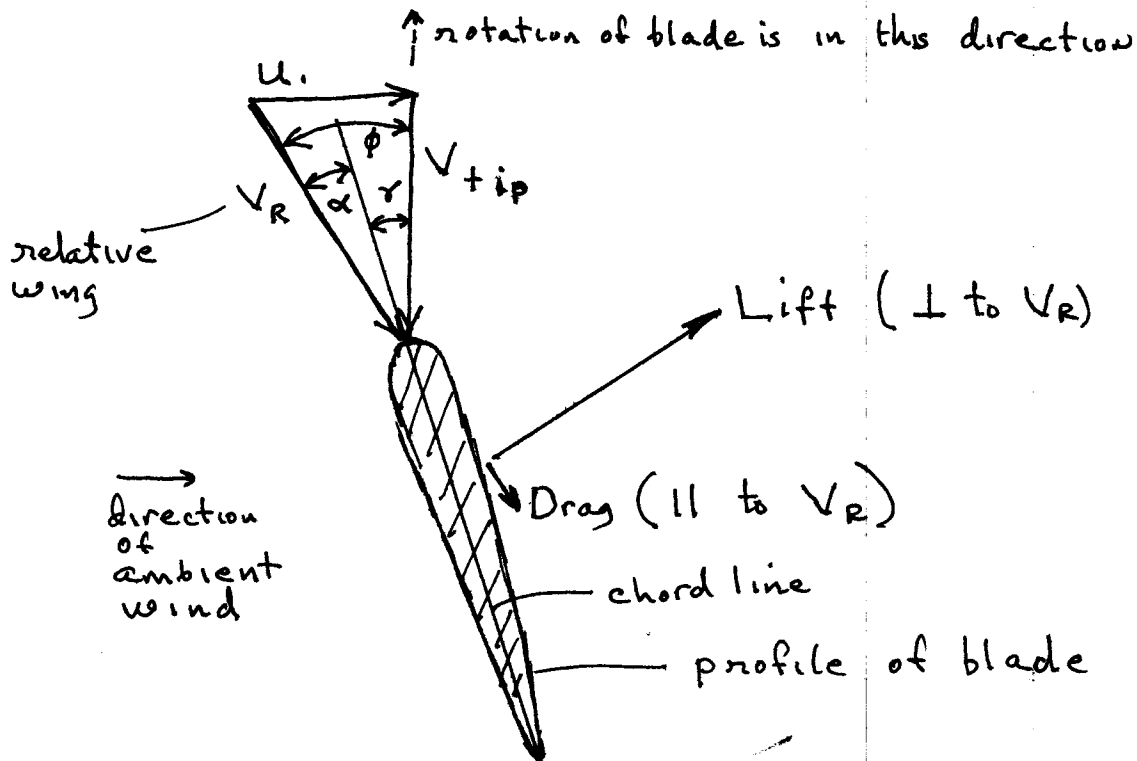 rotation of blade is in this direction
u.
ϕ
V tip
α
γ
V_R
relative
wing
Lift (⊥ to V_R)
Drag (II to V_R)
direction
of
ambient
wind
chord line
profile of blade